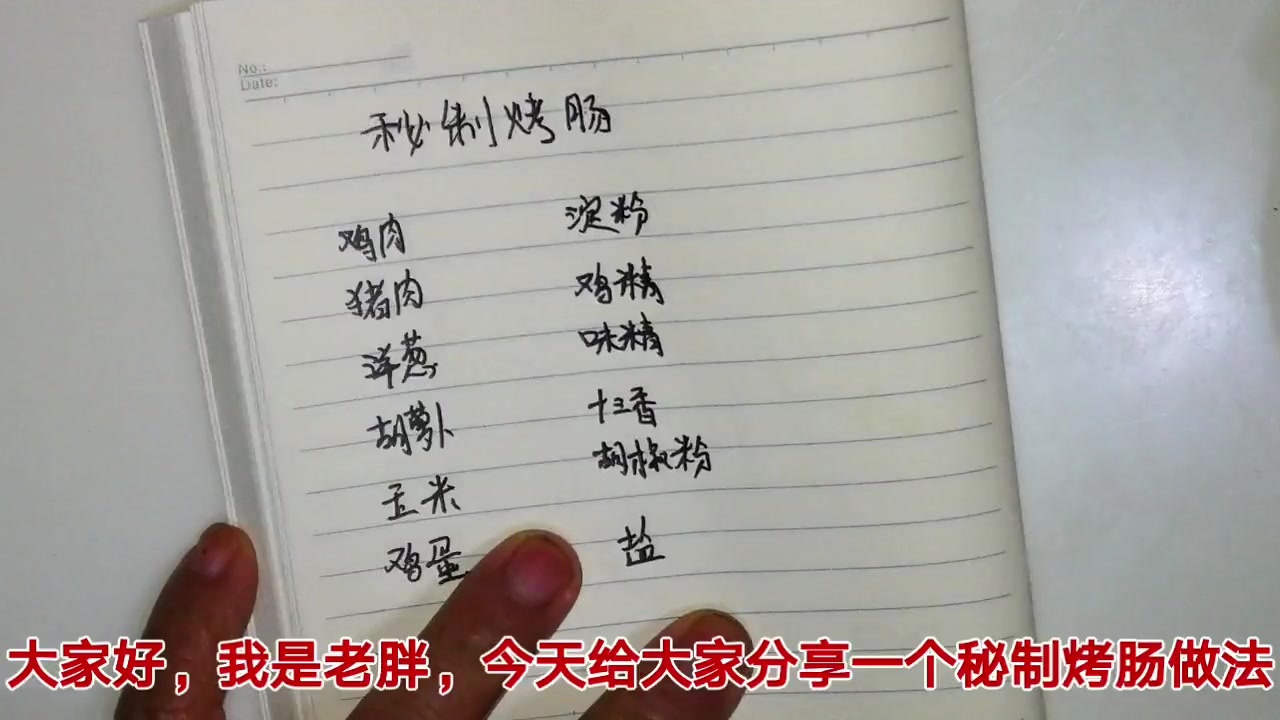 No.:
Date:
秘制烤肠
鸡肉
猪肉
洋葱
胡萝卜
玉米
鸡蛋
淀粉
鸡精
味精
十三香
胡椒粉
盐
大家好，我是老胖，今天给大家分享一个秘制烤肠做法